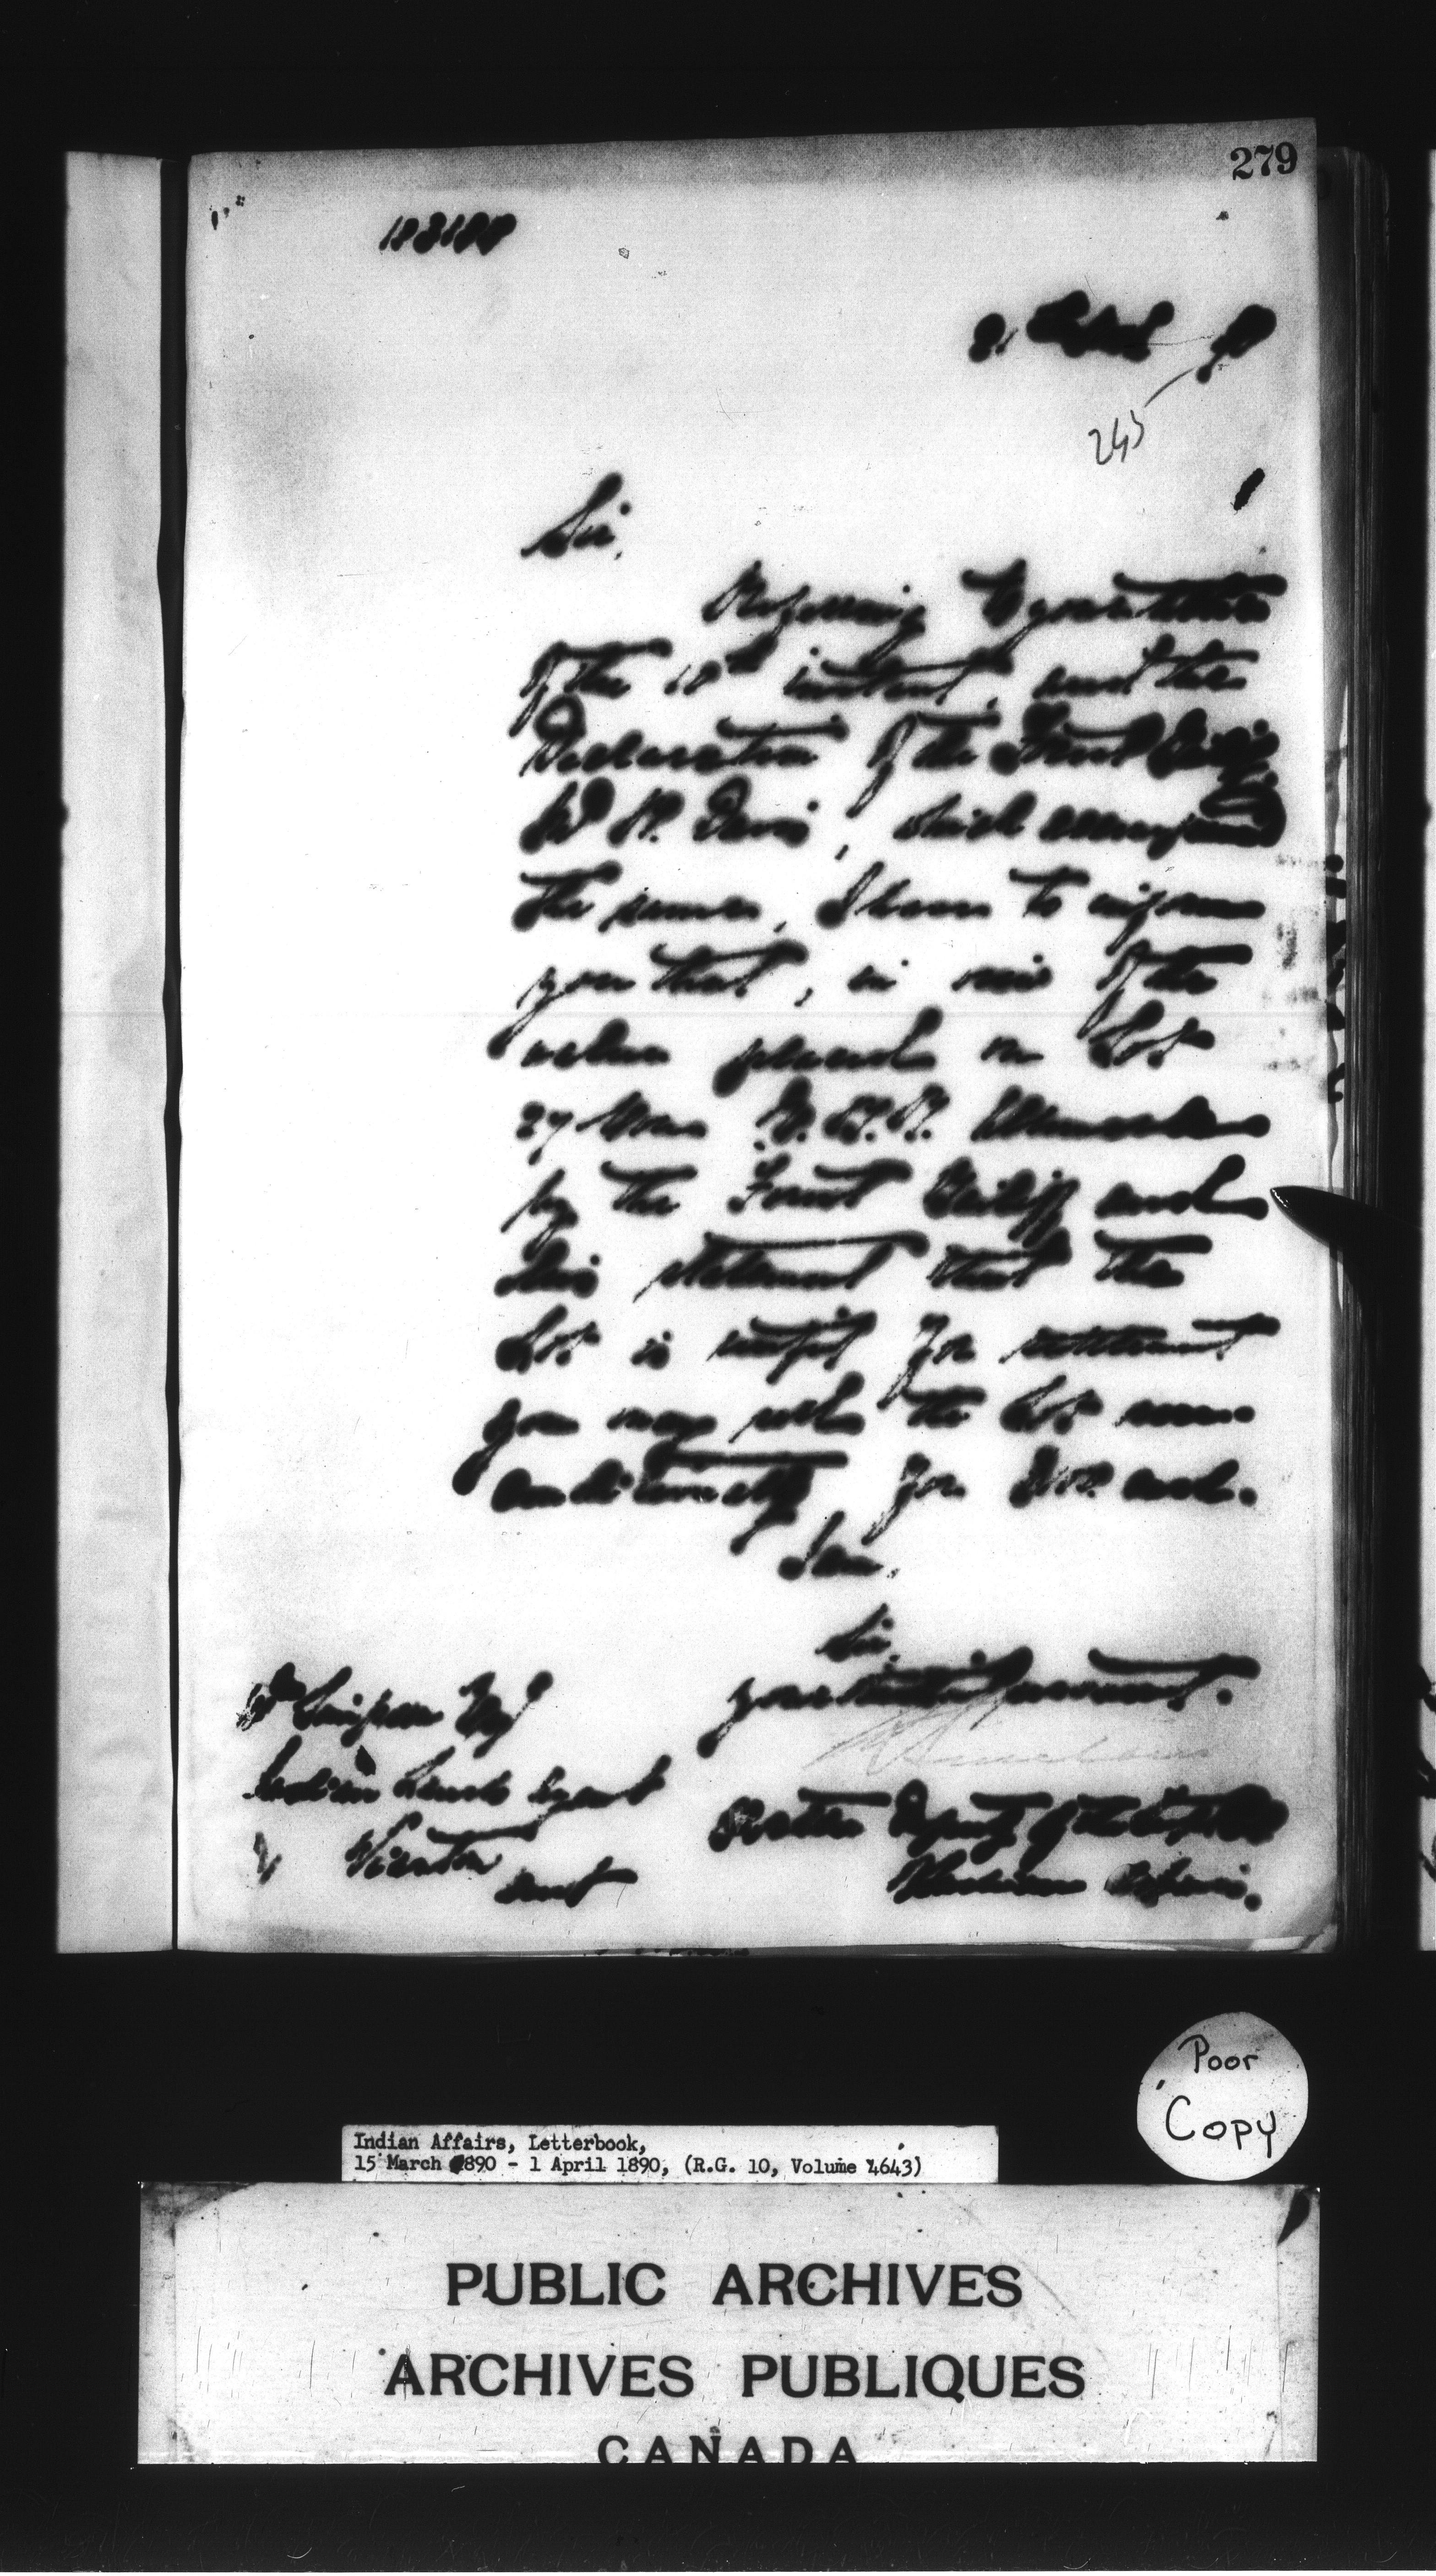 279
21 March 90
245
Sir,
Referring to your letter
of the 18th instant, and the
Declaration of the Forest Bailiff
W. H. Davis, which accompanied
the same, I have to inform
you that, in view of the
value placed on Lot
27 Con. Albemarle
by the Forest Bailiff and
his statement that the
Lot is unfit for settlement
you may sell the Lot un-
conditionally for and.
I am,
Sir,
your obedient servant.
Wm Simpson Esq
Indian Lands Agent
Wiarton
Ont
Deputy of the Supt Genl
of Indian Affairs.
Poor
Copy
Indian Affairs, Letterbook,
15 March 1890 - 1 April 1890, (R.G. 10, Volume 4643)
PUBLIC ARCHIVES
ARCHIVES PUBLIQUES
CANADA